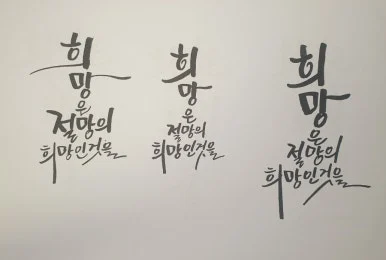 희
망
은
절망의
희망인것을
희
망
은
절망의
희망인것을
희
망
은
절망의
희망인것을